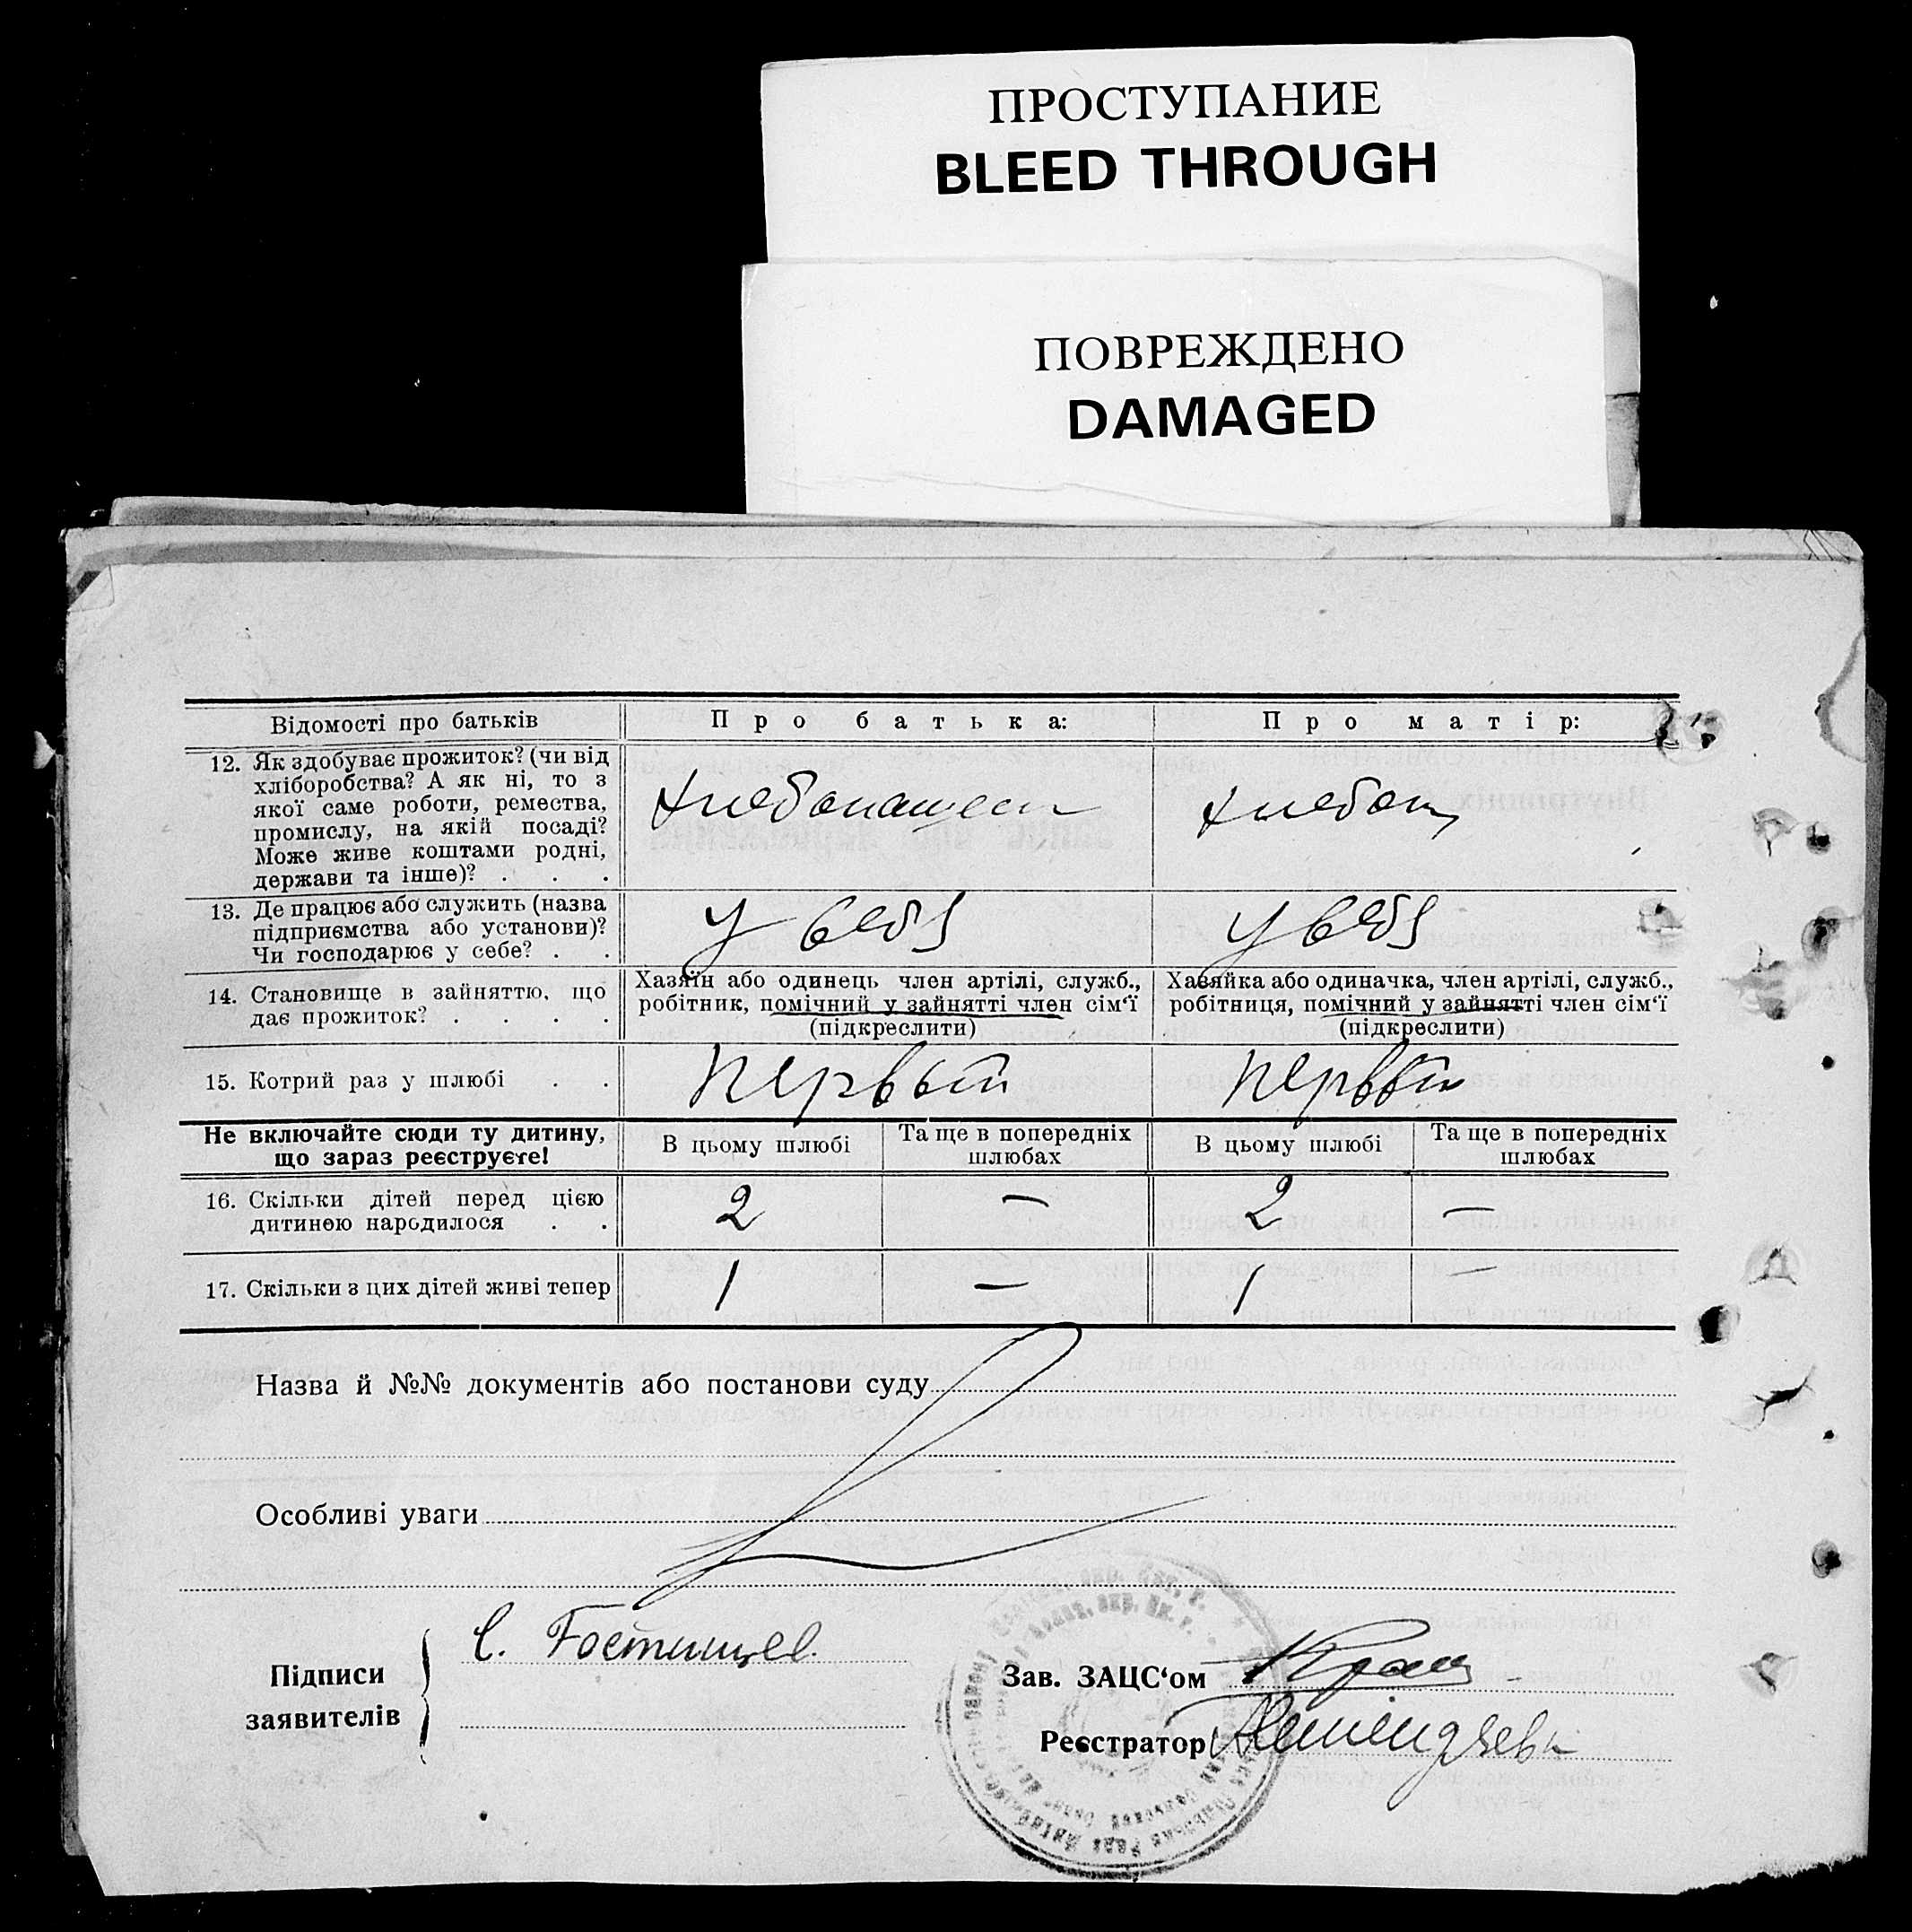 ПРОСТУПАНИЕ
BLEED THROUGH
ПОВРЕЖДЕНО
DAMAGED
Відомості про батьків
Про батька:
Про матір:
12. Як здобуває прожиток? (чи від
хліборобства? А як ні, то з
якої саме роботи, ремества,
промислу, на якій посаді?
Може живе коштами родні,
держави та інше)? . . .
хлебопашест
хлебоп
13. Де працює або служить (назва
підприємства або установи)?
Чи господарює у себе? . .
у себя
у себя
14. Становище в зайняттю, що
дає прожиток? . . . .
Хазяїн або одинець член артілі, служб.,
робітник, помічний у зайнятті член сім'ї
(підкреслити)
Хазяйка або одиначка, член артілі, служб.,
робітниця, помічний у зайнятті член сім'ї
(підкреслити)
15. Котрий раз у шлюбі . .
первый
первый
Не включайте сюди ту дитину,
що зараз реєструєте!
В цьому шлюбі
Та ще в попередніх
шлюбах
В цьому шлюбі
Та ще в попередніх
шлюбах
16. Скільки дітей перед цією
дитиною народилося . .
2 — 2 —
17. Скільки з цих дітей живі тепер
1 — 1 —
Назва й №№ документів або постанови суду
Особливі уваги
Підписи
заявителів
С. Гостищев.
Зав. ЗАЦС'ом
Реєстратор